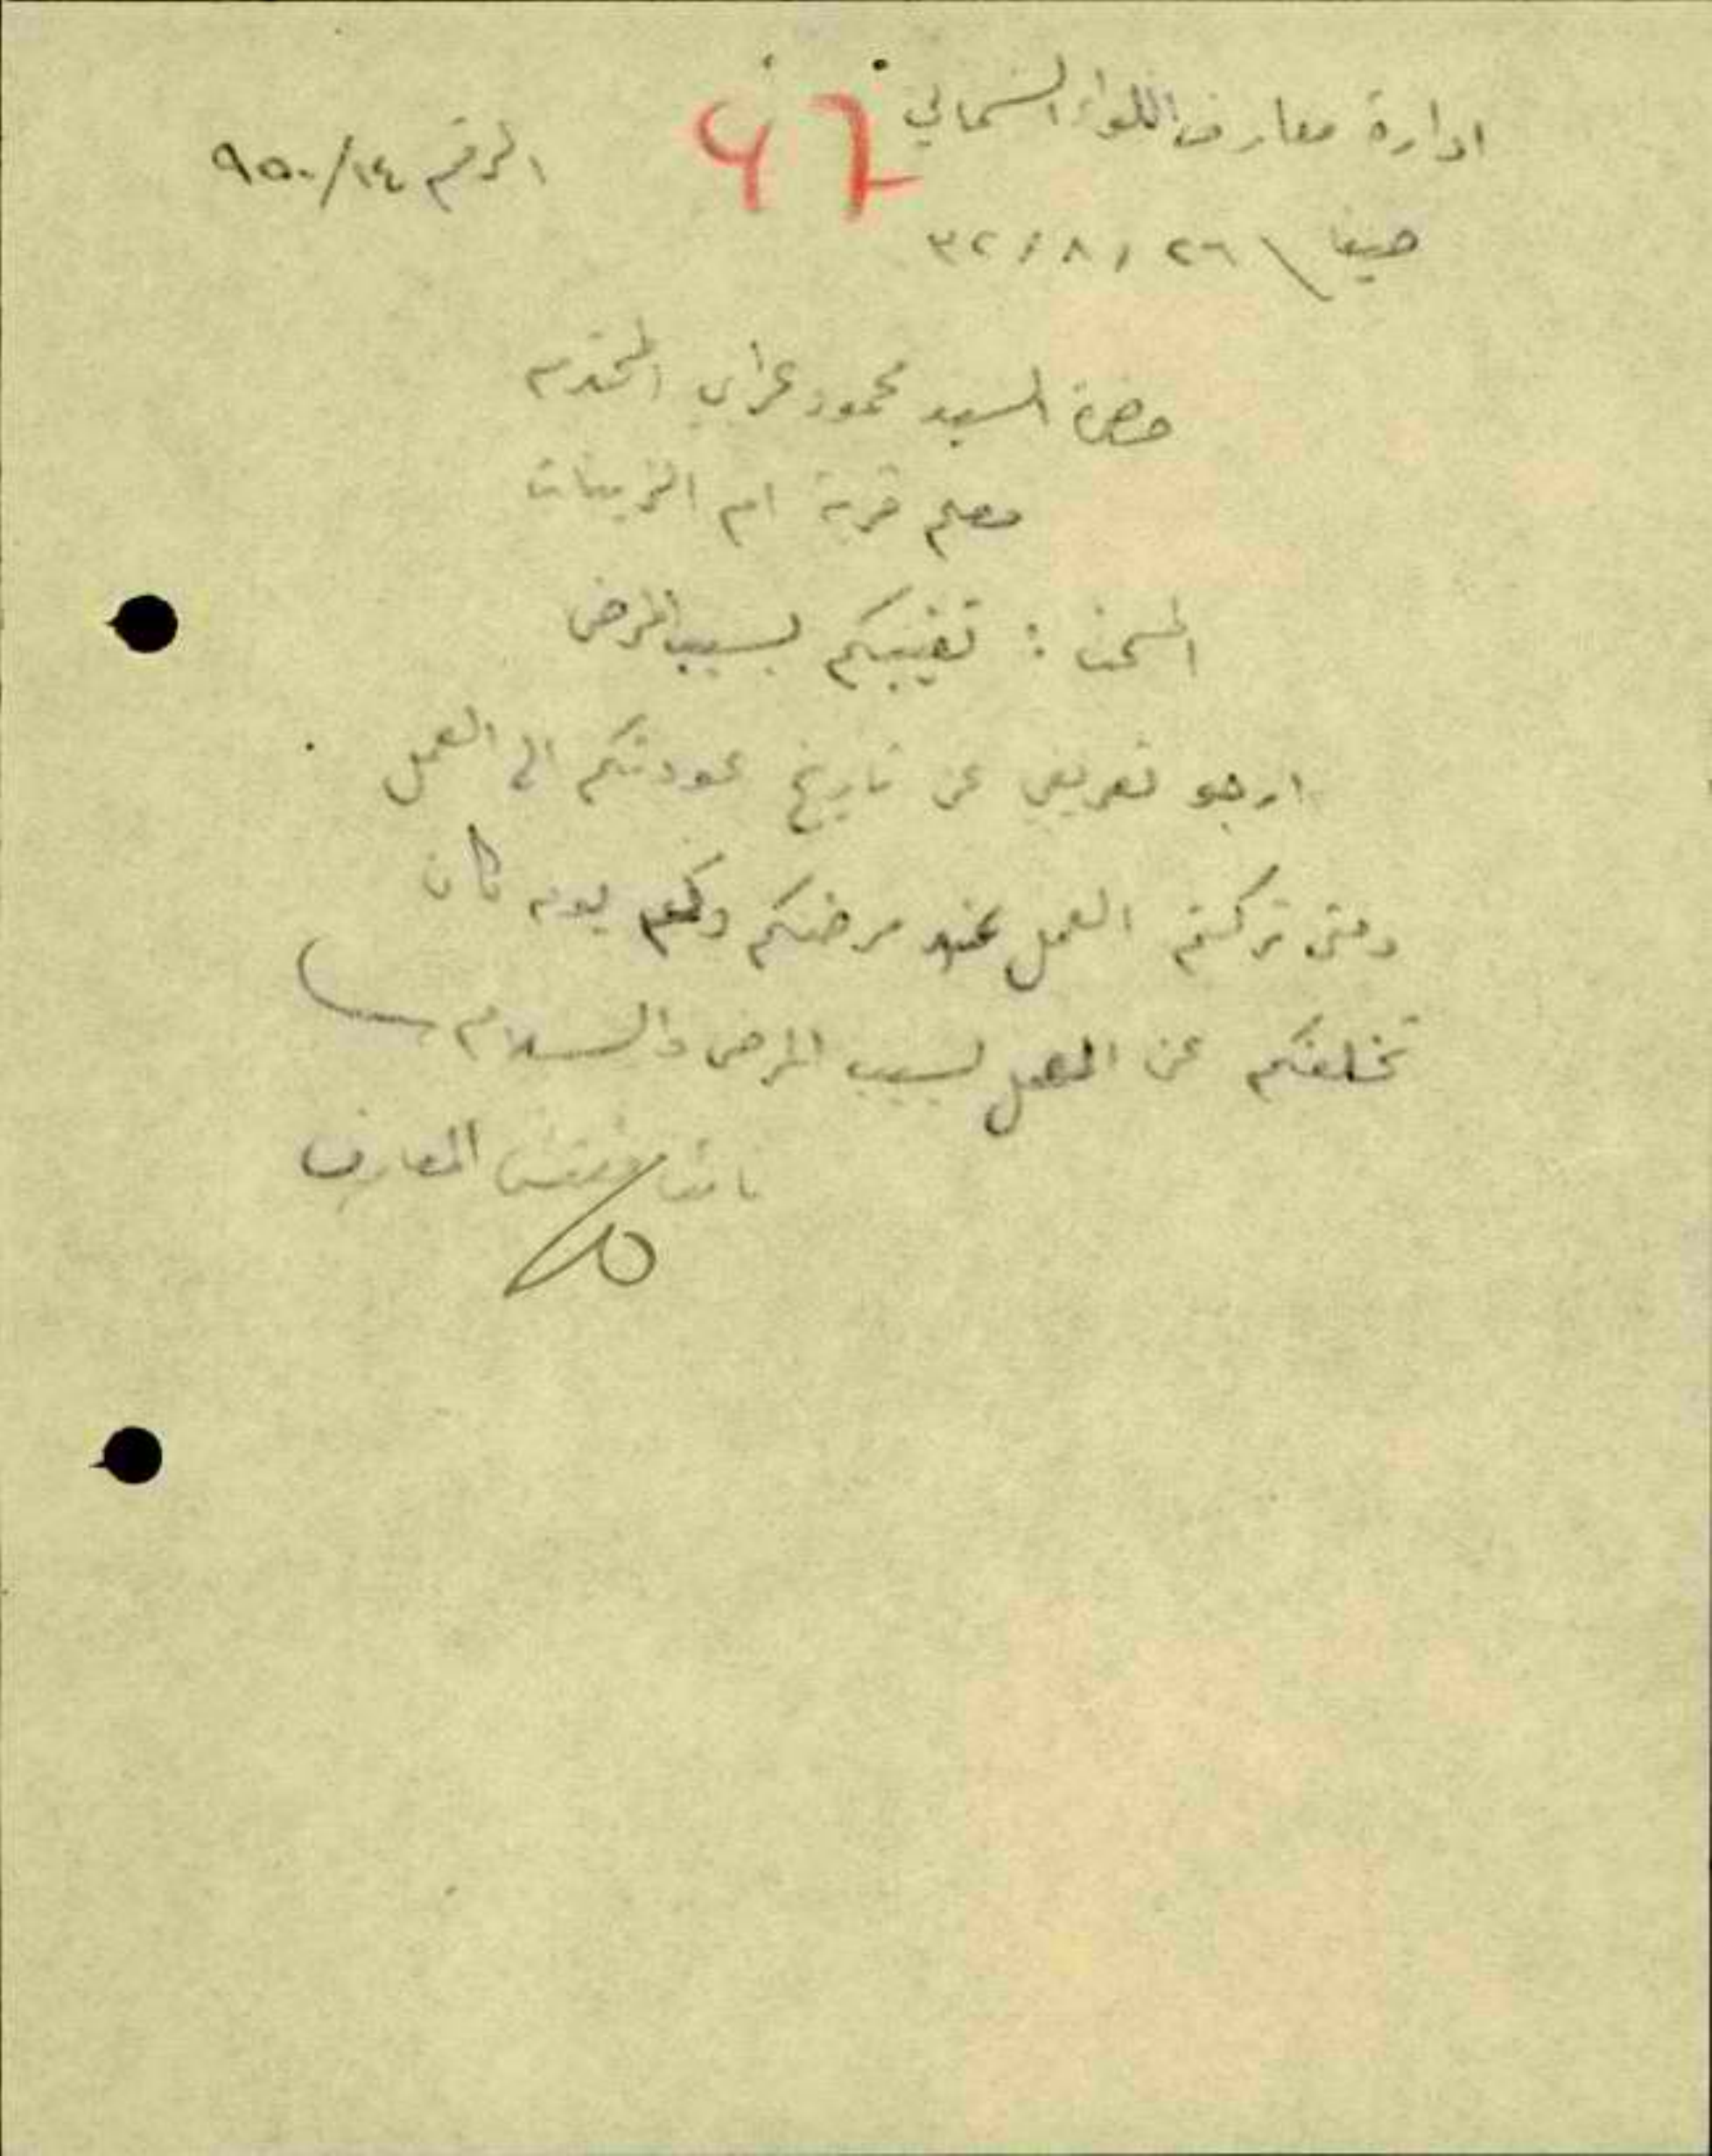 ادارة معارف اللواء الشمالي
الرقم ٩٥٠/١٤
حيفا \ ٢٦ / ٨ / ٣٢
حضرة السيد محمود عرابي المحترم
معلم قرية ام الزينات
المبحث : تغيبكم بسبب المرض
ارجو تعريفي عن تاريخ عودتكم الى العمل
ومتى تركتم العمل عند مرضكم وكم يوم كان
تخلفكم عن العمل بسبب المرض والسلام
مفتش المعارف